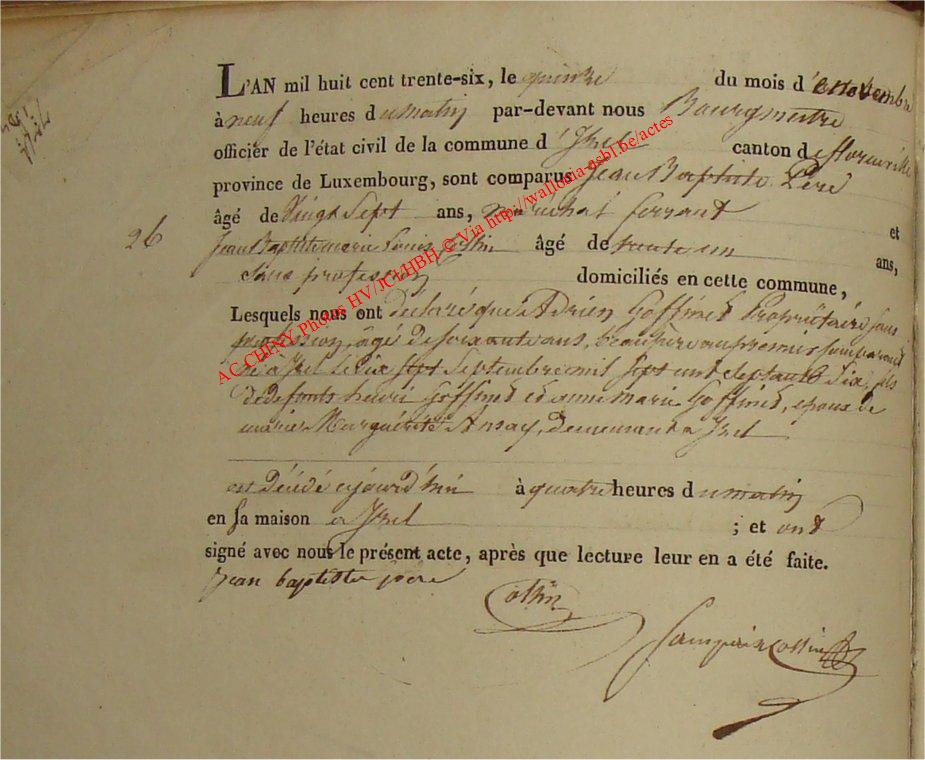 L'AN mil huit cent trente-six, le quinze du mois de novembre
à neuf heures du matin par-devant nous Bourgmestre
officier de l'état civil de la commune d'Izel canton de florenville
province de Luxembourg, sont comparus Jean Baptiste Péré
âgé de vingt Sept ans, maréchal ferrant et
26
Jean Baptiste marie Louis Cothin âgé de trente un ans,
sans profession domiciliés en cette commune,
Lesquels nous ont declarés que Adrien Goffinet Propriétaire sans
profession, âgé de soixante ans, beau père au premier comparant
né à Izel le dix sept Septembre mil sept cent septante Six, fils
de defunts henri Goffinet et anne marie Goffinet, epoux de
Marguérite Ansay, demeurant a Izel
est décédé aujourd'hui à quatre heures du matin
en sa maison a Izel ; et ont
signé avec nous le présent acte, après que lecture leur en a été faite.
jean baptiste pere
Cothin
AC CHINY Photos HV/JCl/HBH © Via http://wallonia-asbl.be/actes